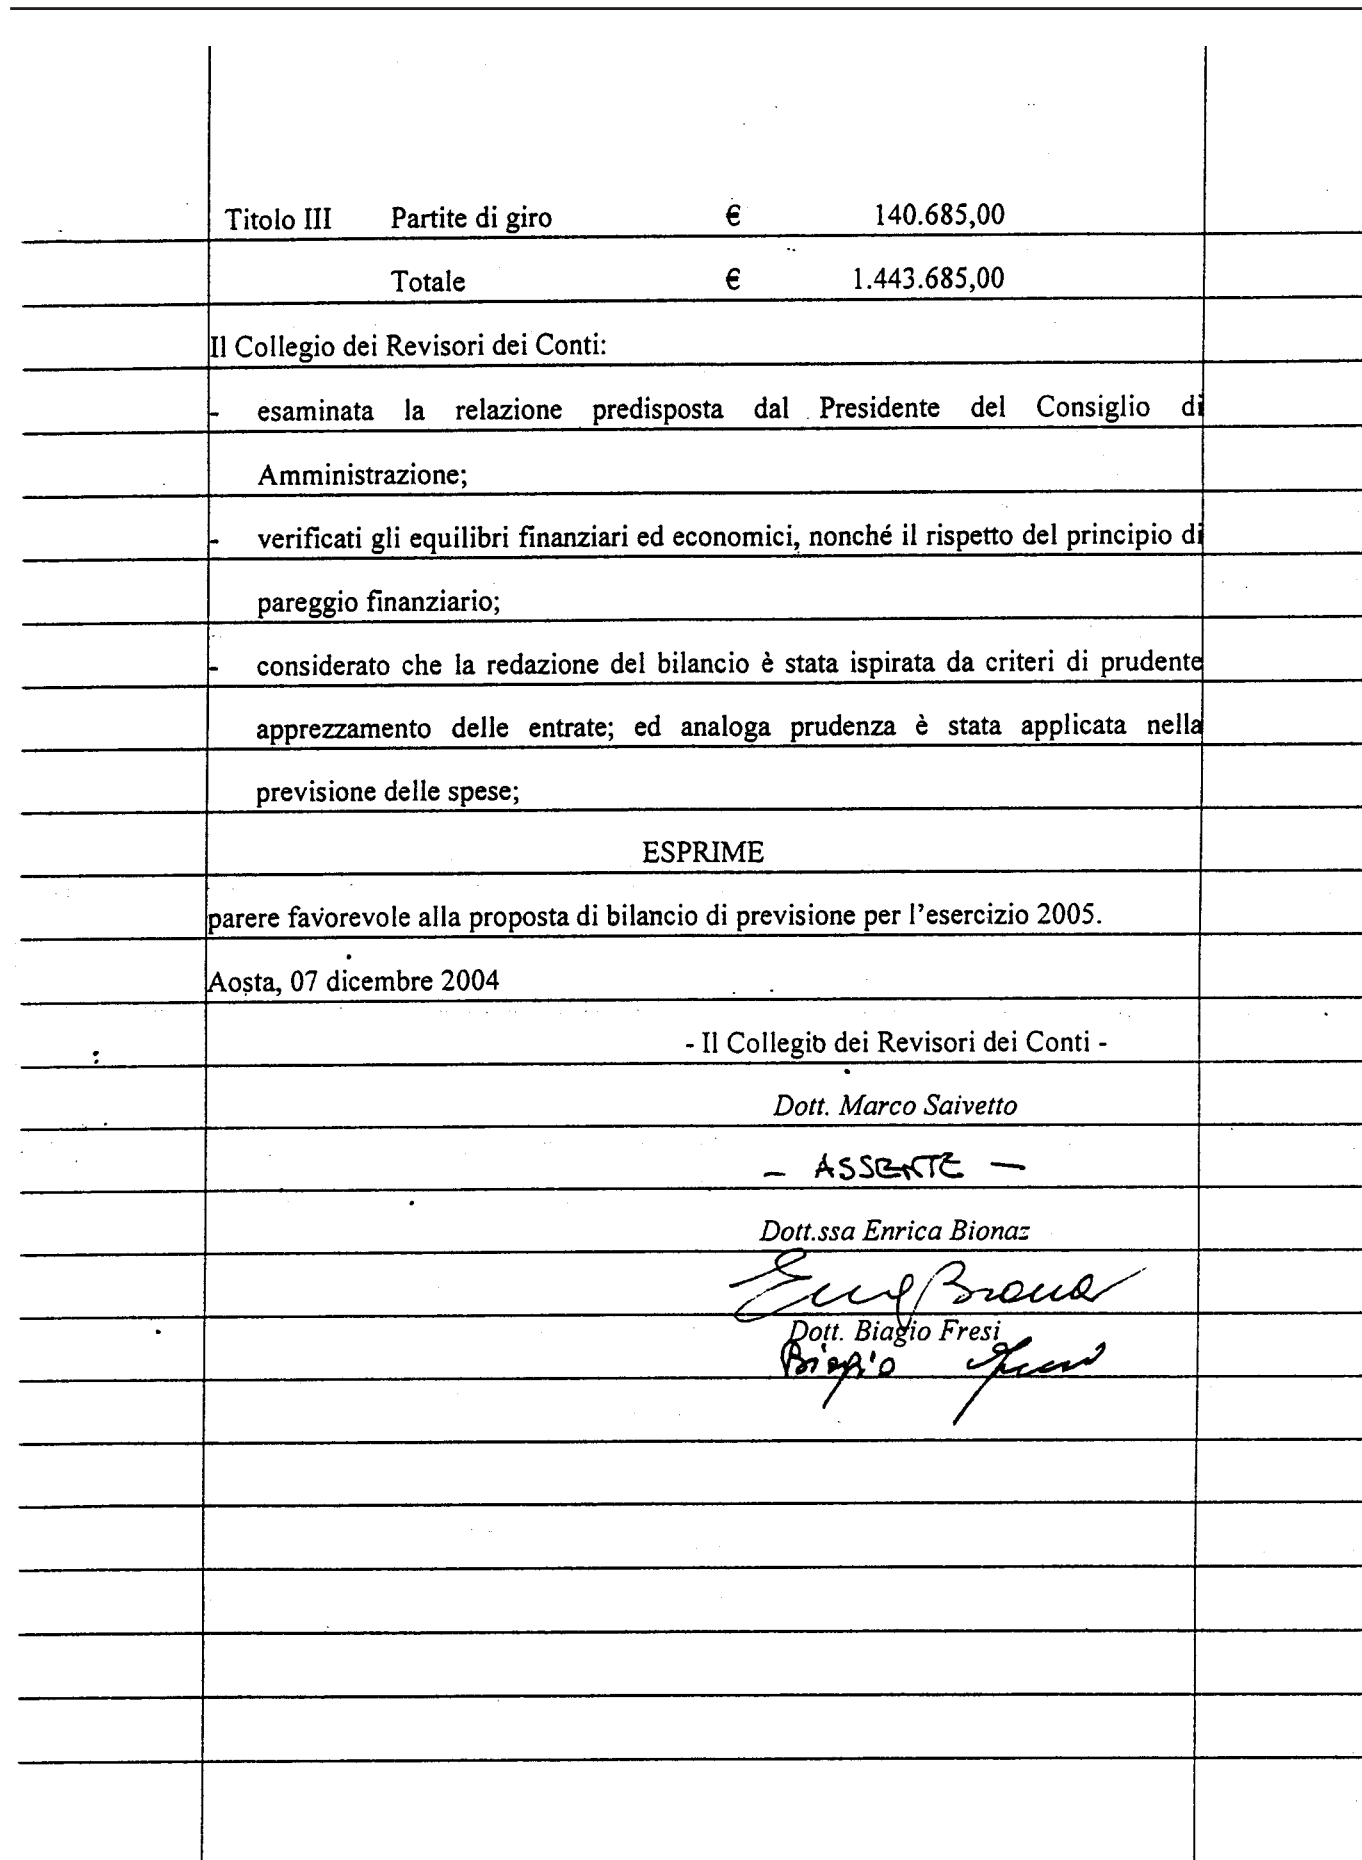 Titolo III Partite di giro € 140.685,00
Totale € 1.443.685,00
Il Collegio dei Revisori dei Conti:
- esaminata la relazione predisposta dal Presidente del Consiglio di
Amministrazione;
- verificati gli equilibri finanziari ed economici, nonché il rispetto del principio di
pareggio finanziario;
- considerato che la redazione del bilancio è stata ispirata da criteri di prudente
apprezzamento delle entrate; ed analoga prudenza è stata applicata nella
previsione delle spese;
ESPRIME
parere favorevole alla proposta di bilancio di previsione per l'esercizio 2005.
Aosta, 07 dicembre 2004
- Il Collegio dei Revisori dei Conti -
Dott. Marco Saivetto
- ASSENTE -
Dott.ssa Enrica Bionaz
Dott. Biagio Fresi
Biagio